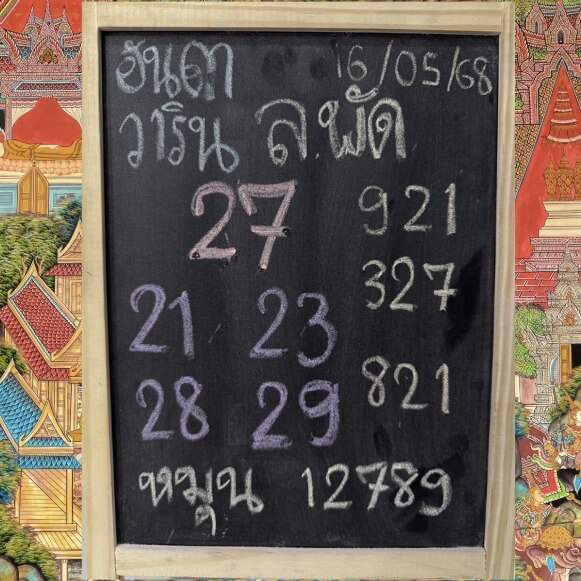 ฮันเตา 16/05/68
วาริน ล.พัด
27 921
327
21 23
821
28 29
หมุน 12789